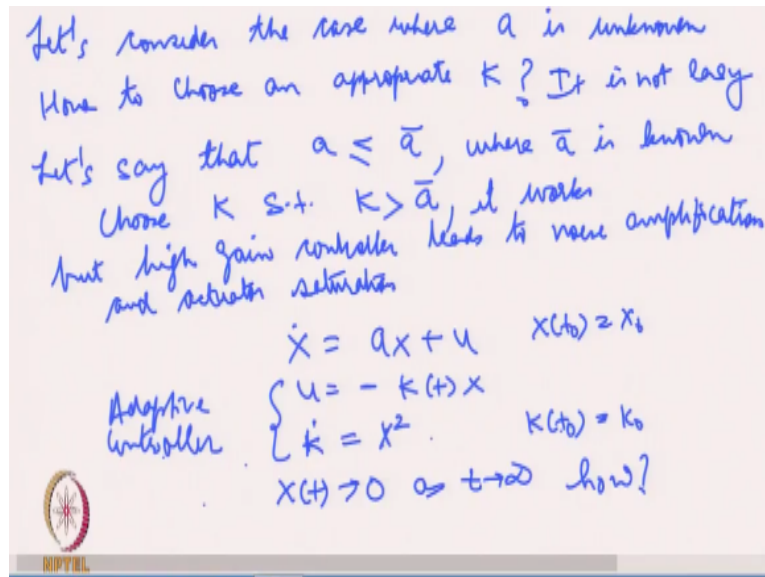 Let's consider the case where a is unknown
How to choose an appropriate K? It is not easy
Let's say that a ≤ ā, where ā is known
choose K s.t. K > ā, it works
but high gain controller leads to noise amplification
and actuator saturation
ẋ = ax + u   x(t₀) = x₀
Adaptive controller { u = - k(t) x
k̇ = x².   k(t₀) = k₀
x(t) → 0 as t → ∞ how?
NPTEL